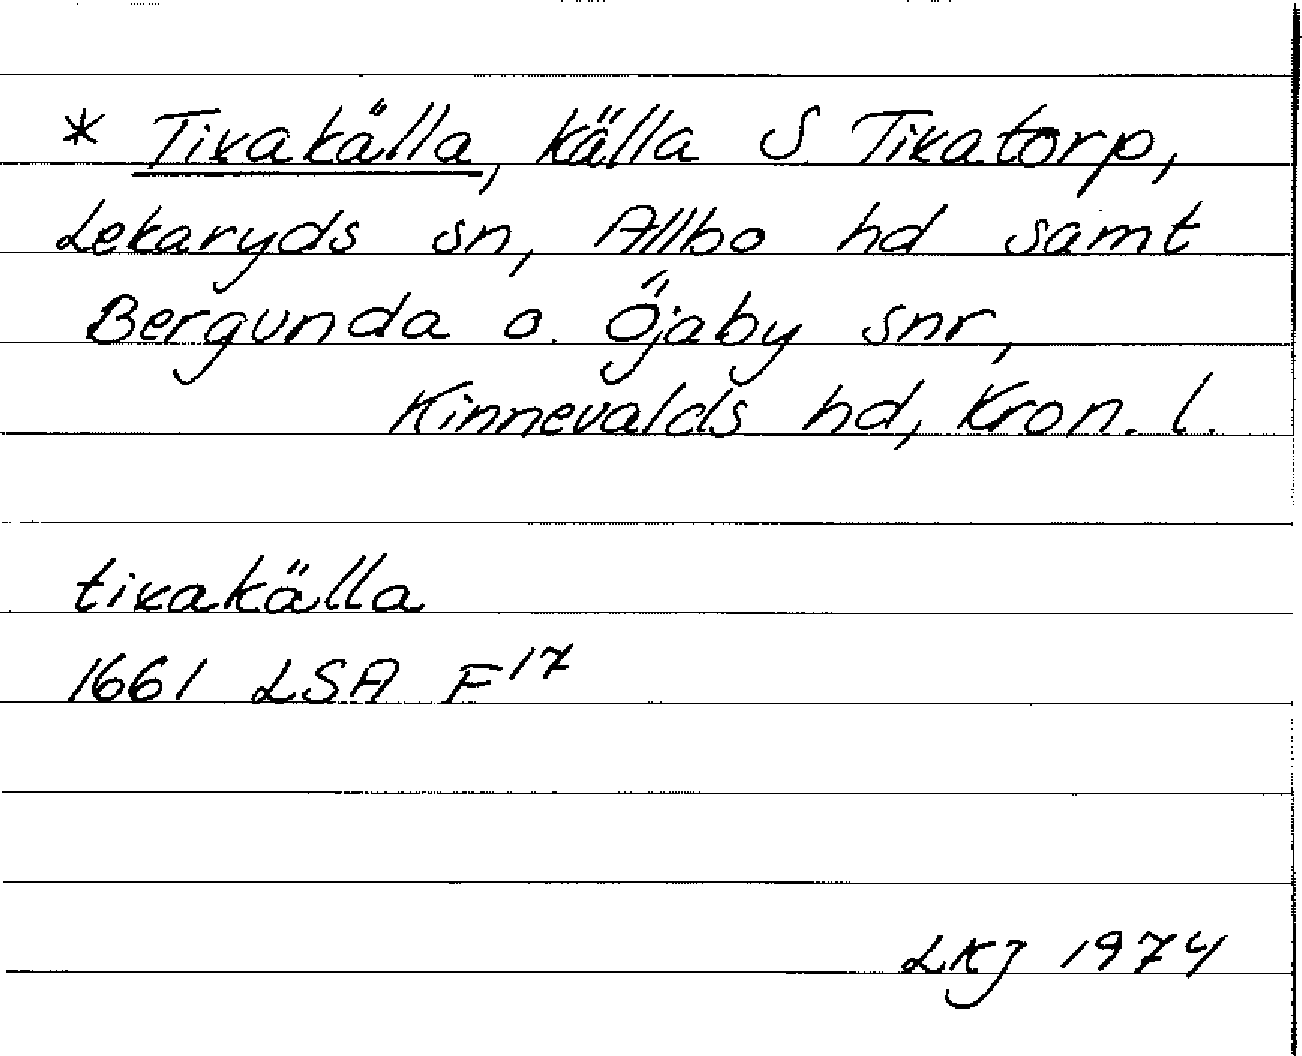 * Tikakälla, källa S Tikatorp,
Lekaryds sn, Allbo hd samt
Bergunda o. Öjaby snr,
Kinnevalds hd, Kron. l.
tikakälla
1661 LSA F17
LKJ 1974